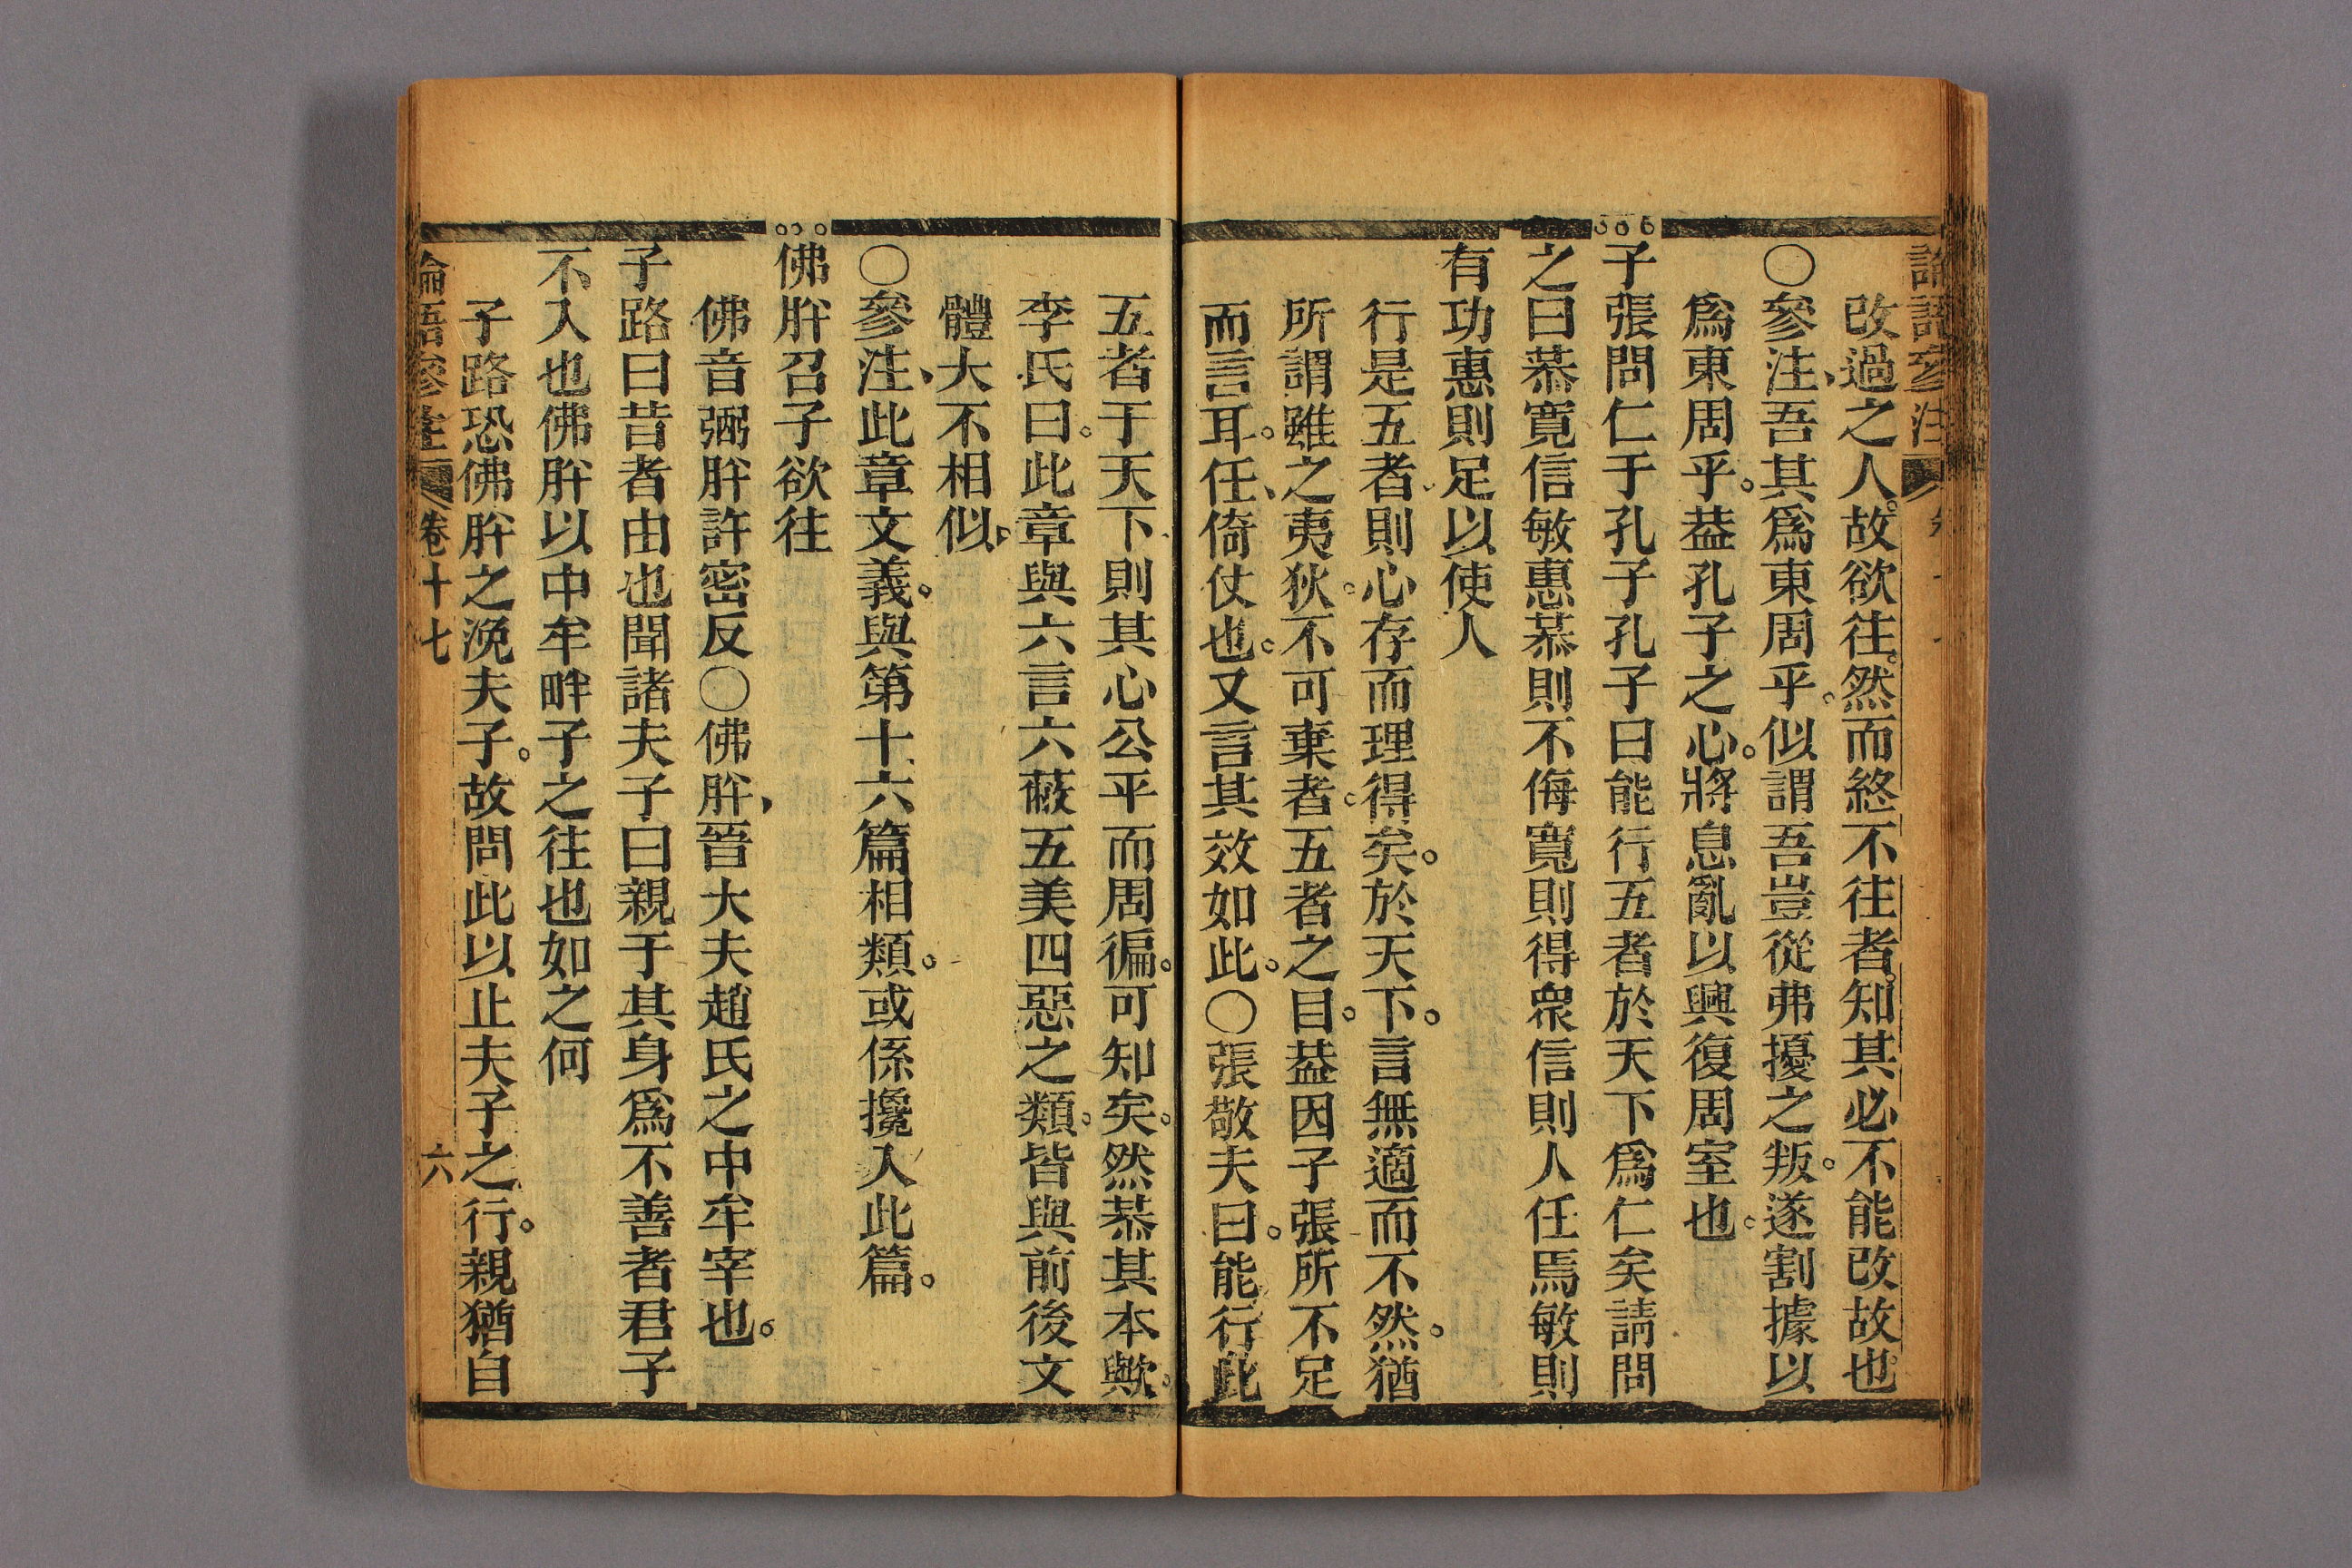 論語參注
改過之人。故欲往。然而終不往者。知其必不能改故也
〇參注、吾其爲東周乎。似謂吾豈從弗擾之叛。遂割據以
爲東周乎。葢孔子之心。將息亂以興復周室也。
子張問仁于孔子孔子曰能行五者於天下爲仁矣請問
之曰恭寬信敏惠恭則不侮寬則得衆信則人任焉敏則
有功惠則足以使人
行是五者、則心存而理得矣。於天下。言無適而不然。猶
所謂雖之夷狄。不可棄者。五者之目。葢因子張所不足
而言耳。任、倚仗也。又言其效如此。〇張敬夫曰。能行此
五者于天下則其心公平而周徧。可知矣。然恭其本歟。
李氏曰。此章與六言六蔽五美四惡之類。皆與前後文
體大不相似。
〇參注、此章文義。與第十六篇相類。或係攙入此篇。
佛肸召子欲往
佛音弼肸許密反〇佛肸、晉大夫趙氏之中牟宰也。
子路曰昔者由也聞諸夫子曰親于其身爲不善者君子
不入也佛肸以中牟畔子之往也如之何
子路恐佛肸之浼夫子。故問此以止夫子之行。親猶自
論語參注 卷十七 六